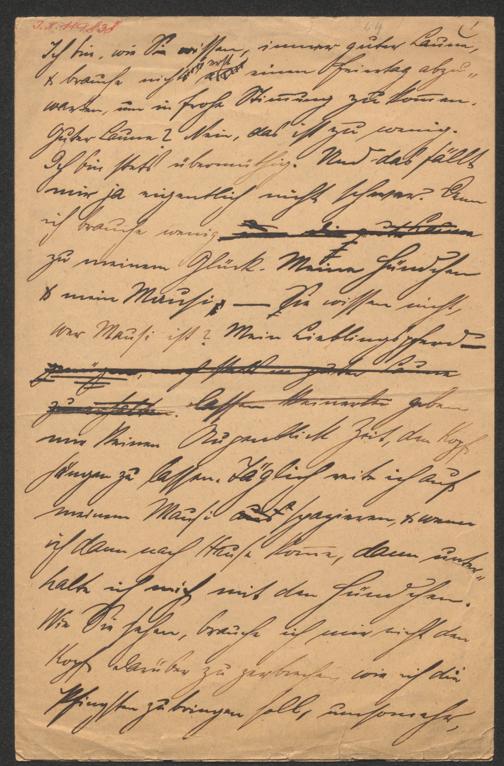 I.N. 117.838
1
Ich bin, wie Sie wissen, immer guter Laune,
& brauche nicht erst einen Feiertag abzu-
warten, um in frohe Stimmung zu kommen.
Guter Laune? Nein, das ist zu wenig.
Ich bin stets übermüthig. Und das fällt
mir ja eigentlich nicht schwer. Denn
ich brauche wenig
zu meinem Glück. Meine Hündchen
& mein Mausi, — Sie wissen nicht,
wer Mausi ist? Mein Lieblingspferd —
zu erhalten lassen geben
mir keinen Augenblick Zeit, den Kopf
hängen zu lassen. Täglich reite ich auf
meinem Mausi spazieren, & wenn
ich dann nach Hause komme, dann unter-
halte ich mich mit den Hündchen.
Wie Sie sehen, brauche ich mir nicht den
Kopf darüber zu zerbrechen, wie ich die
Pfingsten zubringen soll, umsomehr,